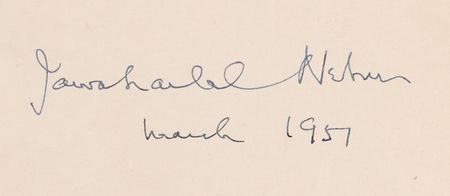 Jawaharlal Nehru
March 1951